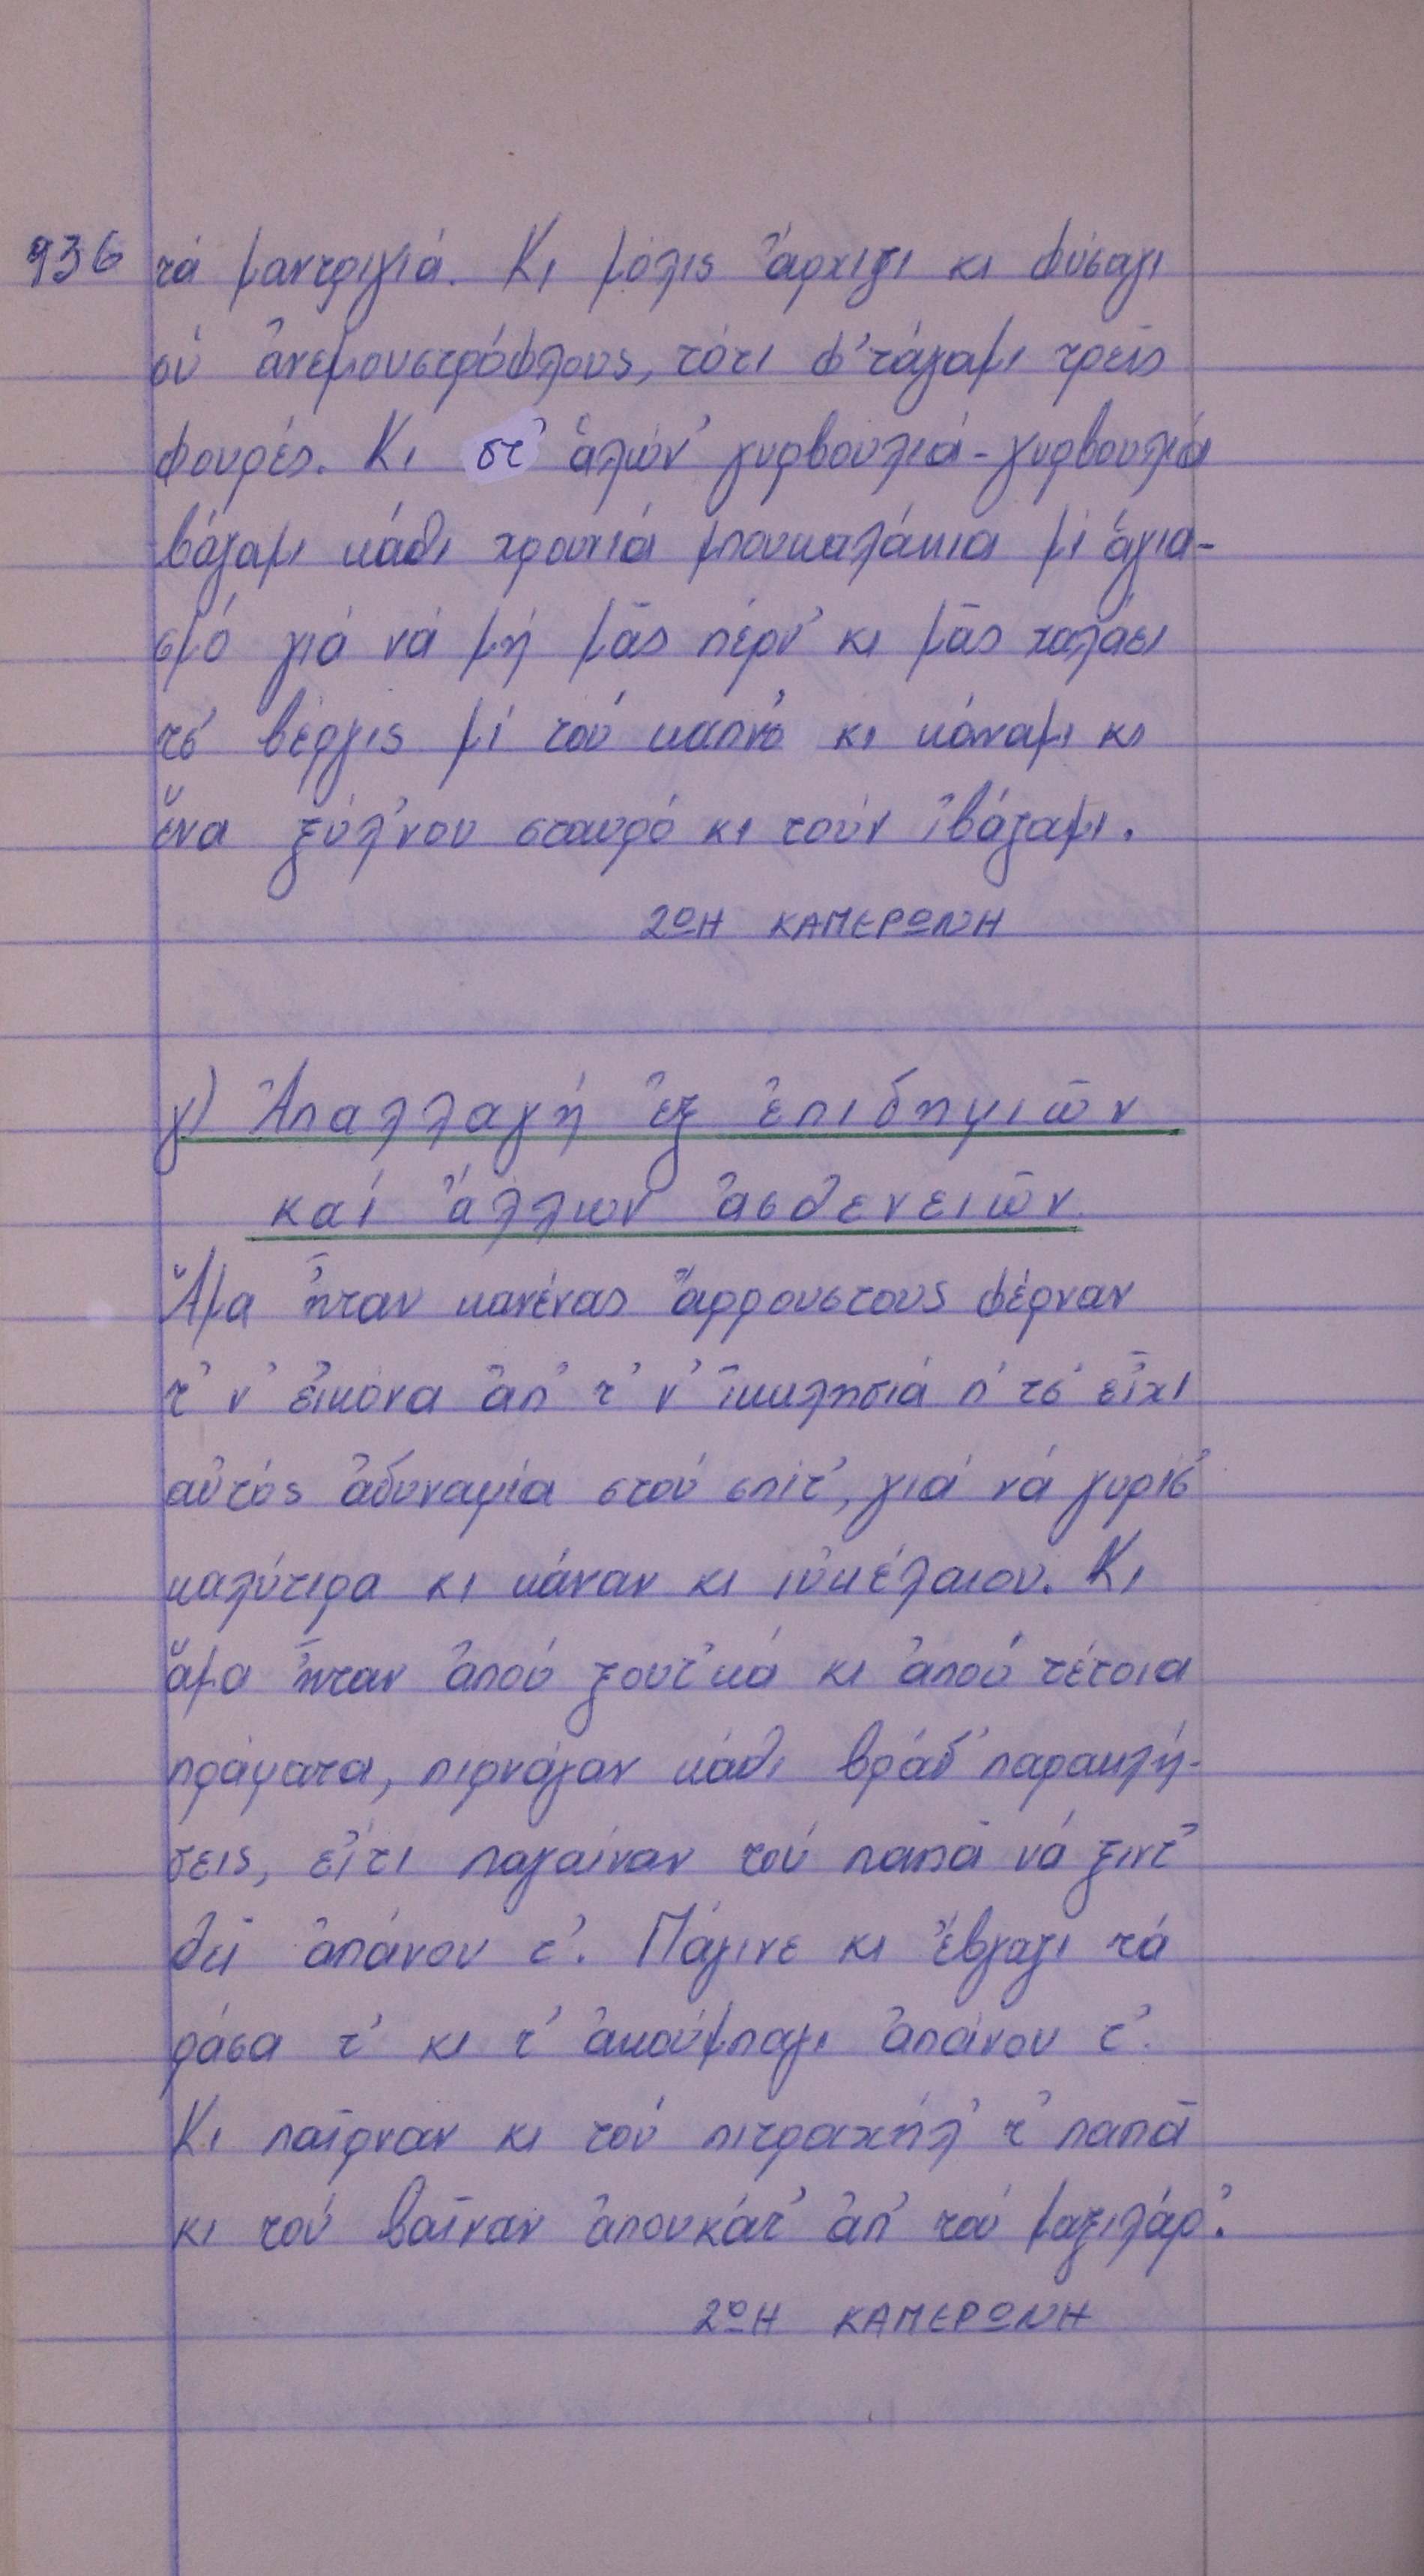 936 τά μαντριλιά. Κι μόλις ἄρχιζι κι φύσαγι
οὐ ἀνεμουστρόφλους, τότι φ'τάγαμι τρεῖς
φουρές. Κι στ' ἁλών' γυρβουλιά-γυρβουλιά
βάζαμι κάθι χρουνιά μπουκαλάκια μί ἁγια-
σμό γιά νά μή μᾶς πέρν' κι μᾶς χαλάει
τσ' βέργις μί τού καπνό κι κάναμι κι
ἕνα ξύλ'νου σταυρό κι τούν ἰβάζαμι.
ΖΩΗ ΚΑΜΕΡΩΝΗ
γ) Ἀπαλλαγή ἐξ ἐπιδημιῶν
καί ἄλλων ἀσθενειῶν.
Ἅμα ἦταν κανένας ἄρρουστους φέρναν
τ' ν' εἰκόνα ἀπ' τ' ν' ἰκκλησιά π' τσ' εἶχι
αὐτός ἀδυναμία στού σπίτ', γιά νά γυρίσ'
καλύτιρα κι κάναν κι ἰὐκέλαιου. Κι
ἅμα ἦταν ἀπού ξουτ'κά κι ἀπού τέτοια
πράματα, πιρνάγαν κάθι βράδ' παρακλή-
σεις, εἴτι παγαίναν τού παπᾶ νά ξιντ'
θεῖ ἀπάνου τ'. Πάγινε κι ἔβγαζι τά
ράσα τ' κι τ' ἀκούμπαγι ἀπάνου τ'.
Κι παῖρναν κι τού πιτραχήλ' τ' παπᾶ
κι τού βαῖναν ἀπουκάτ' ἀπ' τού μαξιλάρ'.
ΖΩΗ ΚΑΜΕΡΩΝΗ